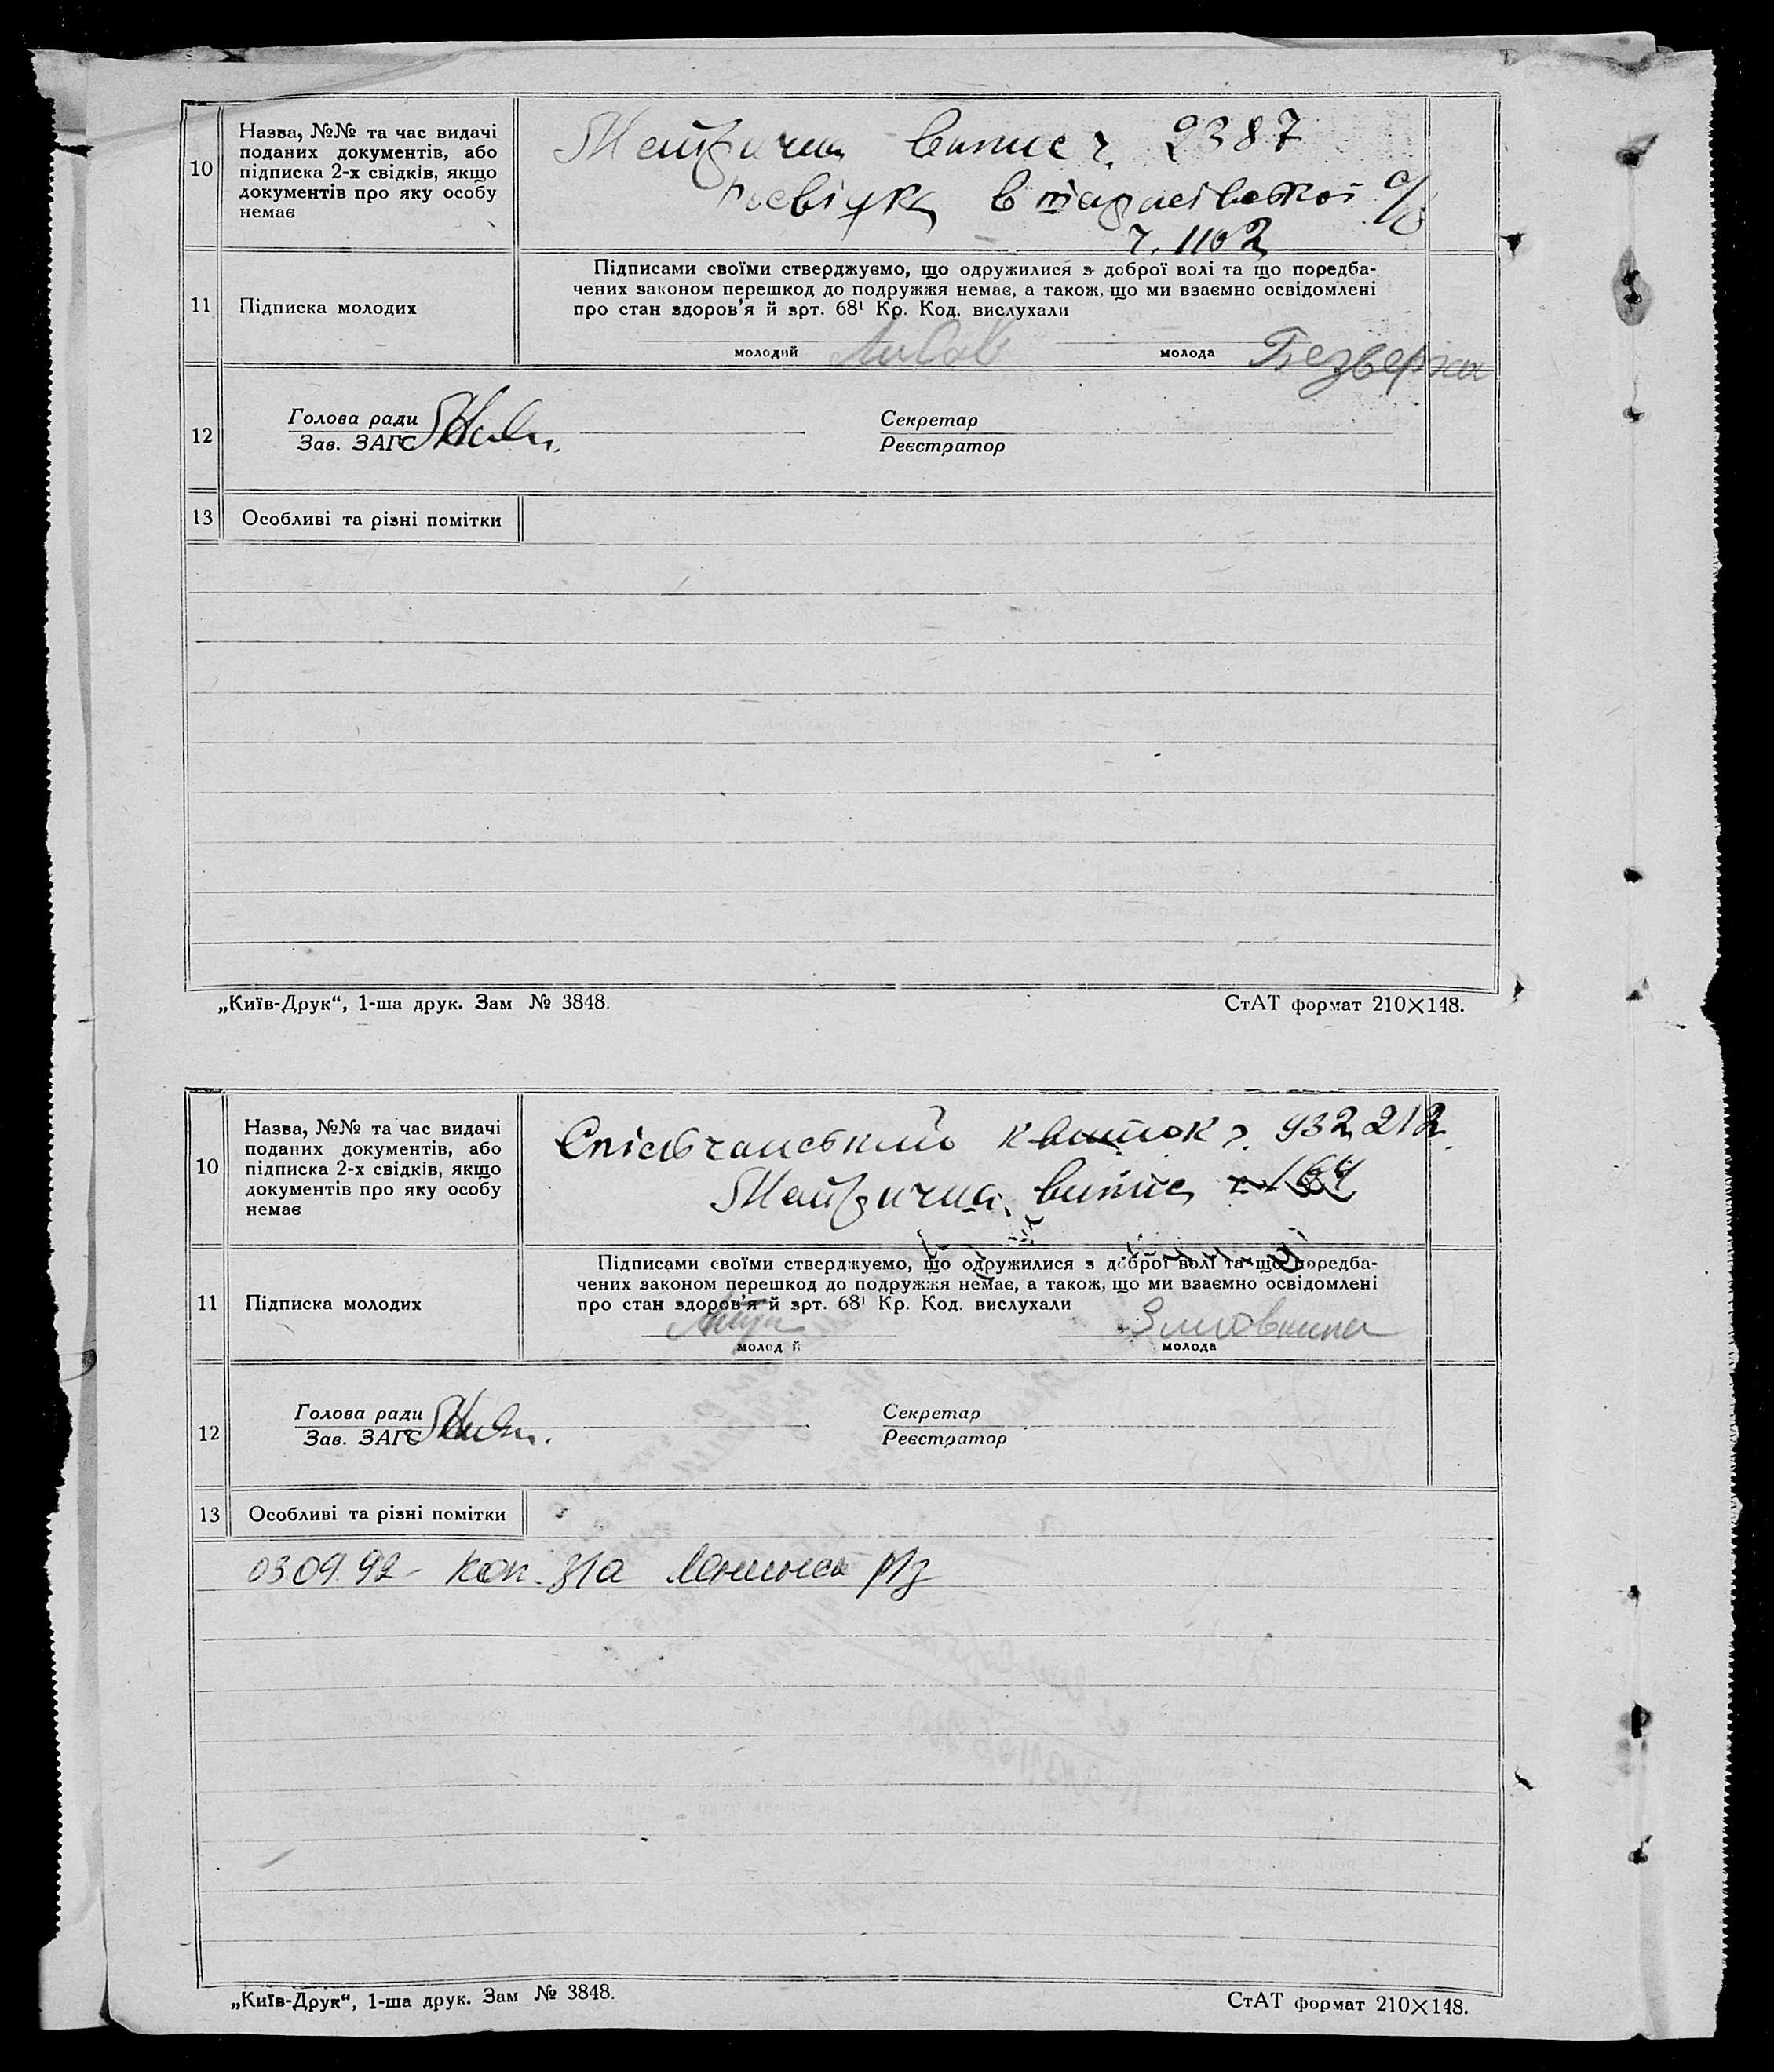 10
Назва, №№ та час видачі
поданих документів, або
підписка 2-х свідків, якщо
документів про яку особу
немає
Метрична випис ч. 2387
посвідка
ч. 1102
11
Підписка молодих
Підписами своїми стверджуємо, що одружилися з доброї волі та що поредба-
чених законом перешкод до подружжя немає, а також, що ми взаємно освідомлені
про стан здоров'я й врт. 68¹ Кр. Код. вислухали
молодий
молода
12
Голова ради
Зав. ЗАГС
Секретар
Реєстратор
13
Особливі та різні помітки
„Київ-Друк“, 1-ша друк. Зам № 3848.
СтАТ формат 210×148.
10
Назва, №№ та час видачі
поданих документів, або
підписка 2-х свідків, якщо
документів про яку особу
немає
квиток ч. 932212
Метрична випис
11
Підписка молодих
Підписами своїми стверджуємо, що одружилися з доброї волі та що поредба-
чених законом перешкод до подружжя немає, а також, що ми взаємно освідомлені
про стан здоров'я й врт. 68¹ Кр. Код. вислухали
молод й
молода
12
Голова ради
Зав. ЗАГС
Секретар
Реєстратор
13
Особливі та різні помітки
03.09.92 - коп. з/а
„Київ-Друк“, 1-ша друк. Зам № 3848.
СтАТ формат 210×148.